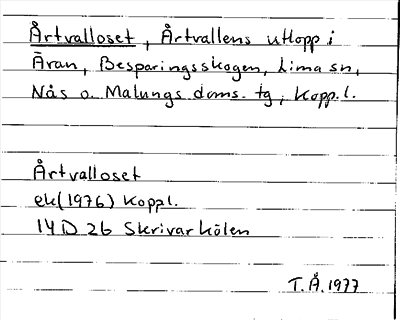 Årtvalloset, Årtvallens utlopp i
Äran, Besparingsskogen, Lima sn,
Nås o. Malungs doms. tg, Kopp.l.
Årtvalloset
ek(1976) Koppl.
14D 2b Skrivarkölen
T.Å.1977